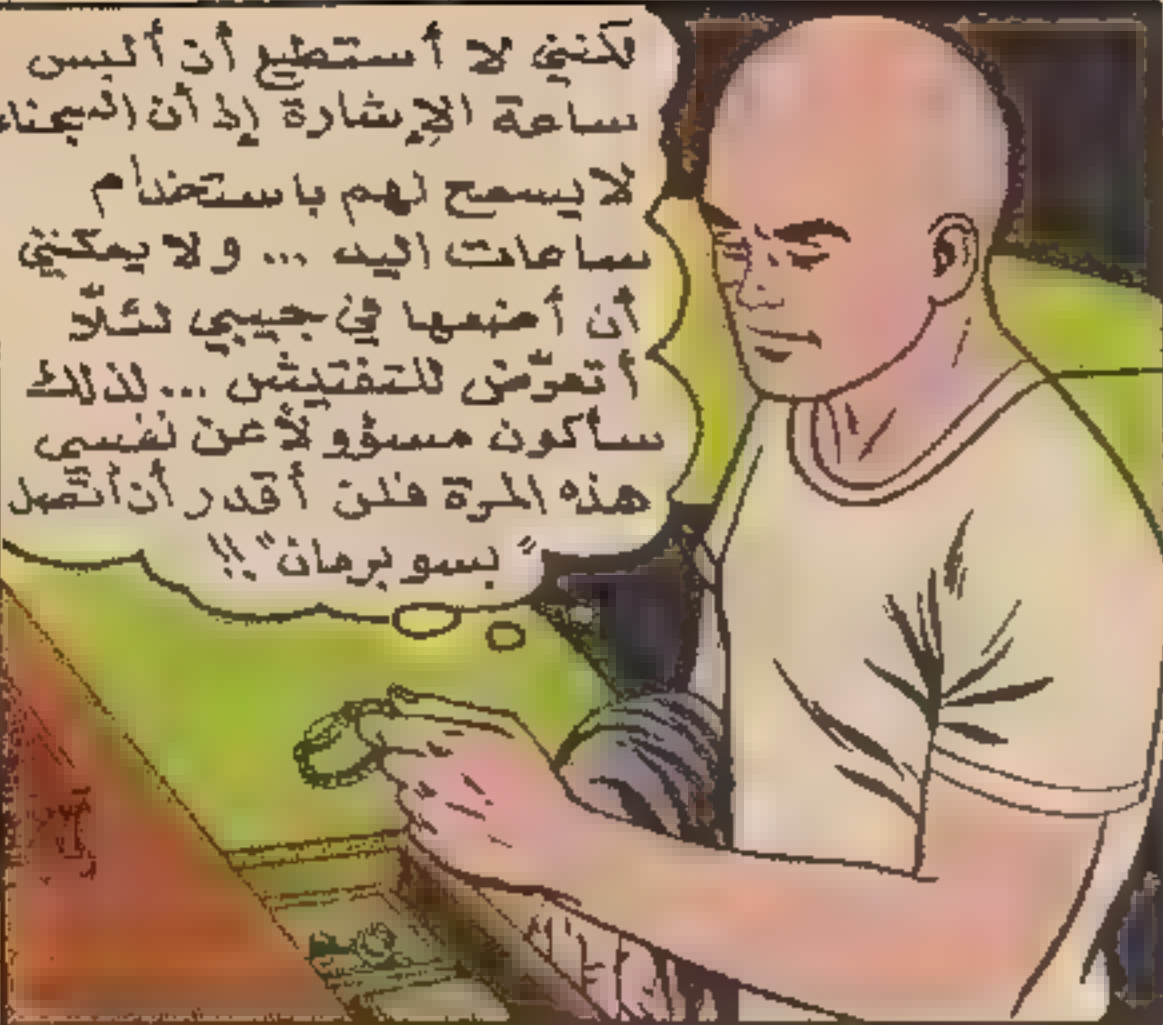 لكنني لا أستطيع أن ألبس
ساعة الإشارة إذ أن السجناء
لا يسمح لهم باستخدام
ساعات اليد ... ولا يمكنني
أن أضعها في جيبي لئلّا
أتعرّض للتفتيش ... لذلك
سأكون مسؤولاً عن نفسي
هذه المرة فلن أقدر أن أتّصل
"بسوبرمان"!!